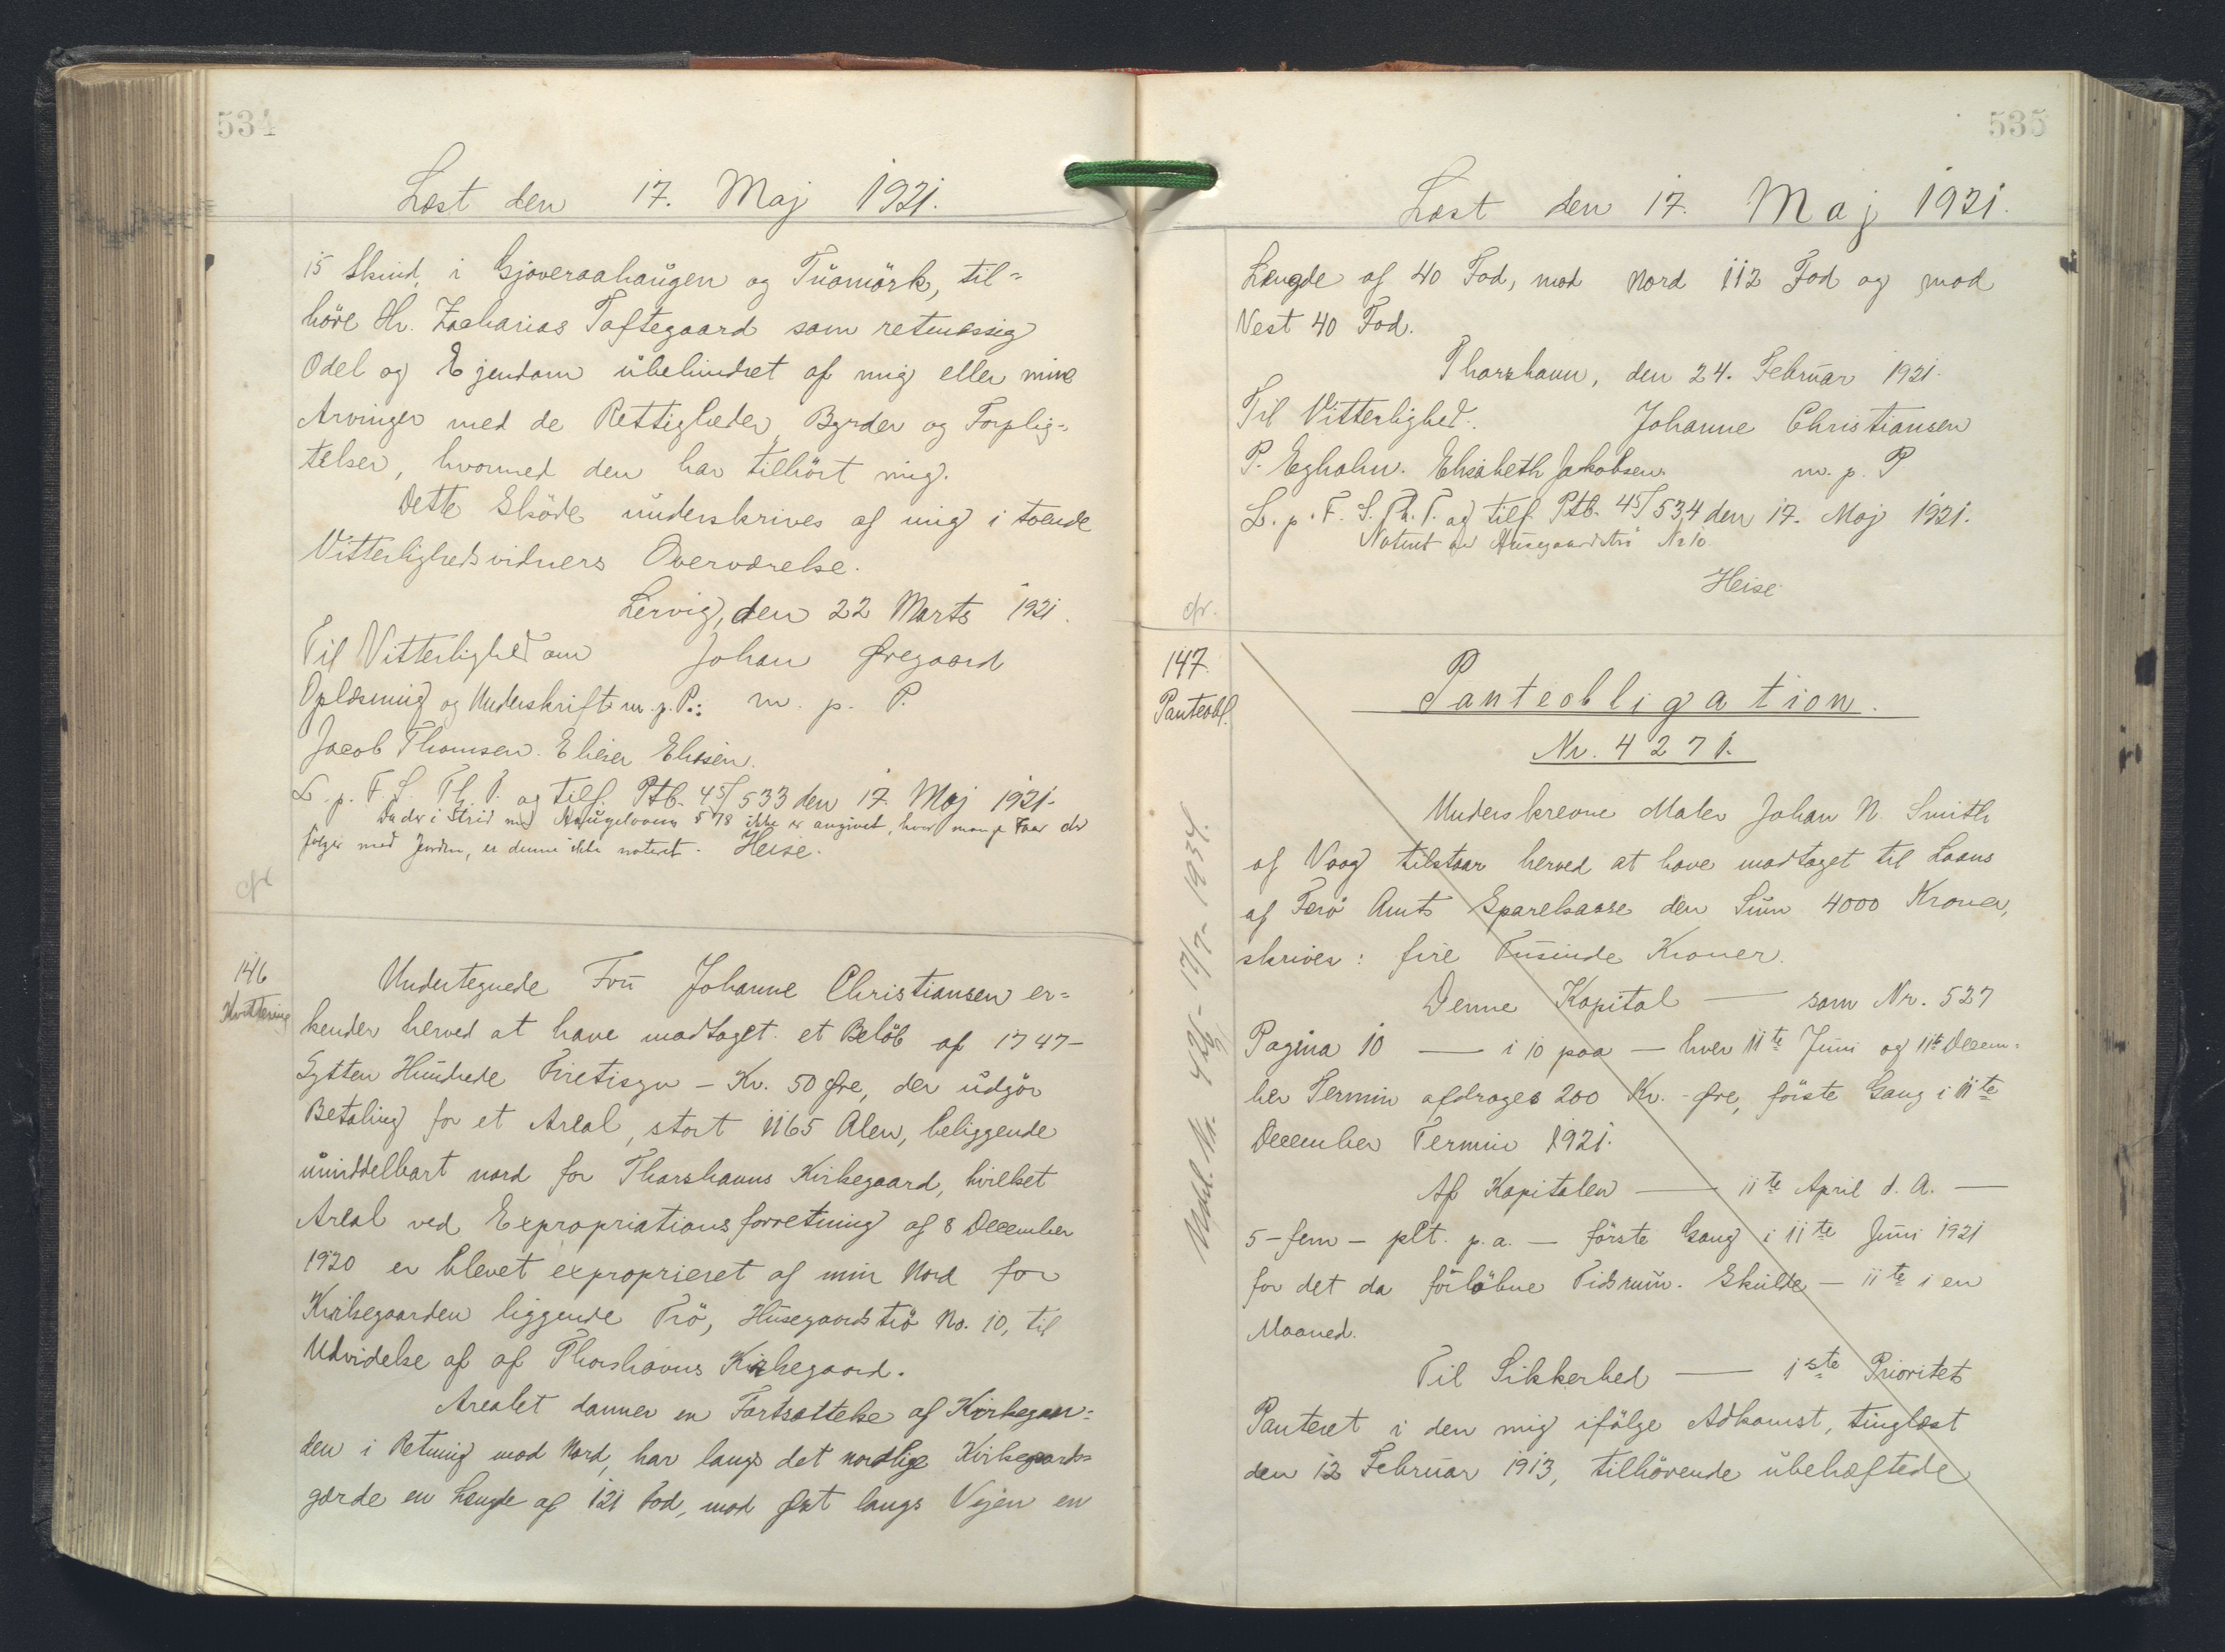 534
Læst den 17. Maj 1921.
15 Skind, i Gjoveraahaugen og Tuamörk, til=
höre Hr. Zacharias Toftegaard som retmæssig
Odel og Ejendom ubehindret af mig eller mine
Arvinger med de Rettigheder, Byrder og Forplig=
telser, hvormed den har tilhört mig.
Dette Sköde underskrives af mig i tvende
Vitterlighedsvidners Overværelse.
Lervig, den 22 Marts 1921.
Til Vitterlighed om Johan Øregaard
Oplæsning og Underskrift m.g.P.: m. p. P.
Jacob Thomsen. Elieser Eliasen.
L. p. F. S. Th. P. og tilf. Ptb. 45/533 den 17. Maj 1921.
Da der i Strid med Haugelovens § 78 ikke er angivet, hvor mange Faar der
følger med Jorden, er denne ikke noteret. Heise.
cfr
146
Kvittering
Undertegnede Fru Johanne Christiansen er=
kender herved at have modtaget et Beløb af 1747-
Sytten Hundrede Firetisyv - Kr. 50 Øre, der udgör
Betaling for et Areal, stort 1165 Alen, beliggende
umiddelbart nord for Thorshavns Kirkegaard, hvilket
Areal ved Expropriationsforretning af 8 December
1920 er blevet exproprieret af min Nord for
Kirkegaarden liggende Trö, Husegaardströ No. 10, til
Udvidelse af af Thorshavns Kirkegaard.
Arealet danner en Fortsættelse af Kirkegaar=
den i Retning mod Nord, har langs det nordlige Kirkegaards=
gærde en Længde af 121 Fod, mod Øst langs Vejen en
535
Læst den 17. Maj 1921.
Længde af 40 Fod, mod Nord 112 Fod og mod
Vest 40 Fod.
Thorshavn, den 24. Februar 1921.
Til Vitterlighed: Johanne Christiansen
P. Egholm. Elisabeth Jakobsen. m. p. P
L. p. F. S. Th. P. og tilf. Ptb. 45/534 den 17. Maj 1921.
Noteret paa Husegaardströ No 10.
Heise
cfr.
147.
Panteobl.
Panteobligation.
Nr. 4271.
Underskrevne Maler Johan N. Smith
af Vaag tilstaar herved at have modtaget til Laans
af Færö Amts Sparekasse den Sum 4000 Kroner,
skriver: fire Tusinde Kroner.
Denne Kapital — som Nr. 527
Pagina 10 — i 10 paa — hver 11te Juni og 11te Decem=
ber Termin afdrages 200 Kr. - Øre, förste Gang i 11te
December Termin 1921.
Af Kapitalen — 11te April d. A. —
5 - fem - pCt. p. a. — förste Gang i 11te Juni 1921
for det da forløbne Tidsrum. Skulde — 11te i en
Maaned.
Til Sikkerhed — 1ste Prioritets
Panteret i den mig ifölge Adkomst, tinglæst
den 12 Februar 1913, tilhörende ubehæftede
17/7 - 1934.